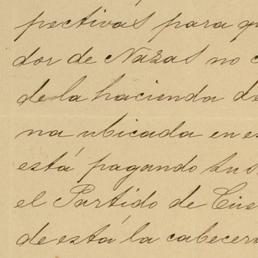 pectivas para qu
dor de Nazas no c
de la hacienda de
na ubicada en es
está pagando sus
el Partido de Cue
de está la cabecer